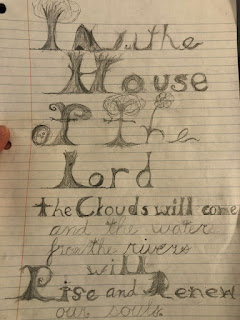 In the
House
of the
Lord
the Clouds will come
and the water
from the rivers
will
Rise and Renew
our souls.